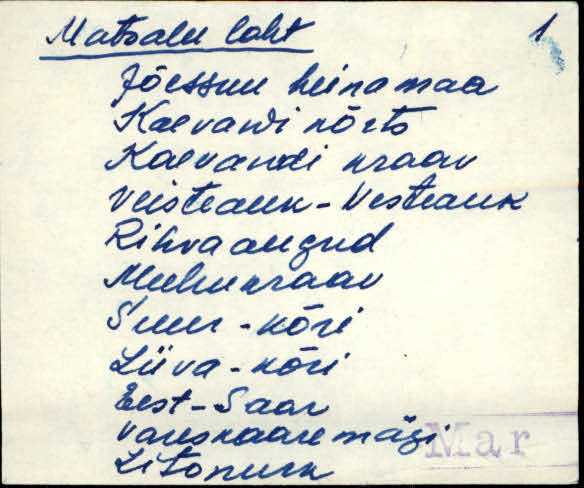 Matsalu laht 1
Jõessuu heinamaa
Kaevandi kõrts
Kaevandi kraav
Veisteauk - Vesteauk
Rihvaaugud
Muhukraav
Suur-kõri
Liiva-kõri
Eest-Saar
Vareskaare mägi
Mar
Litonurk